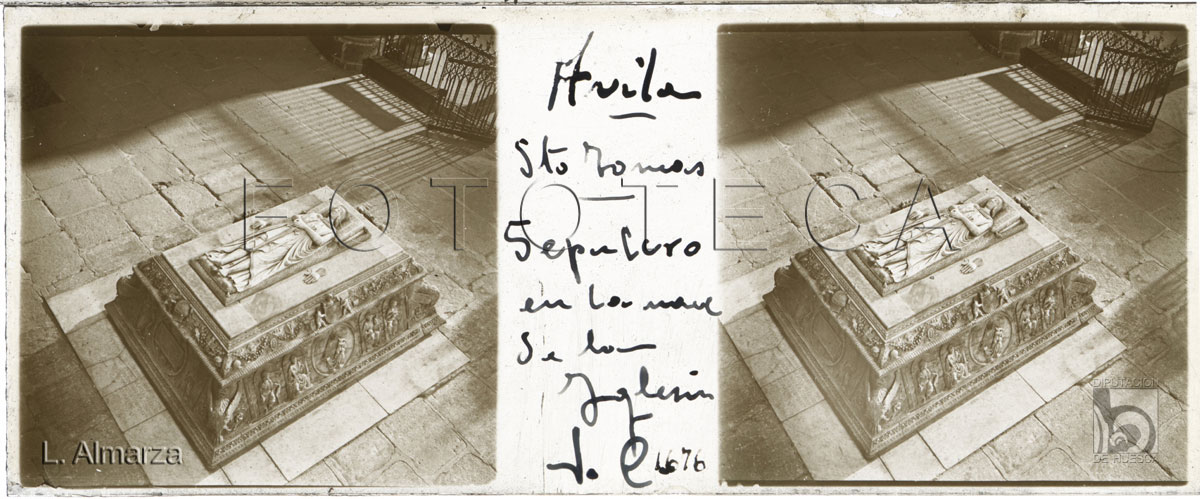 Avila
Sto Tomas
Sepulcro
en la nave
de la
Yglesia
J. C 1676
FOTOTECA
L. Almarza
DIPUTACION
DE HUESCA